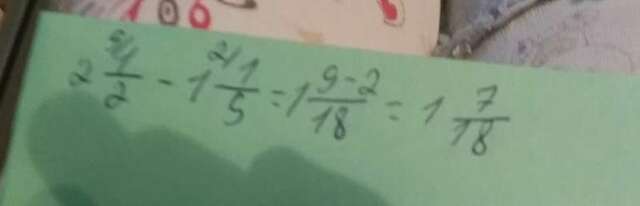 100
2 9/1/2 - 1 2/1/5 = 1 9-2/18 = 1 7/18